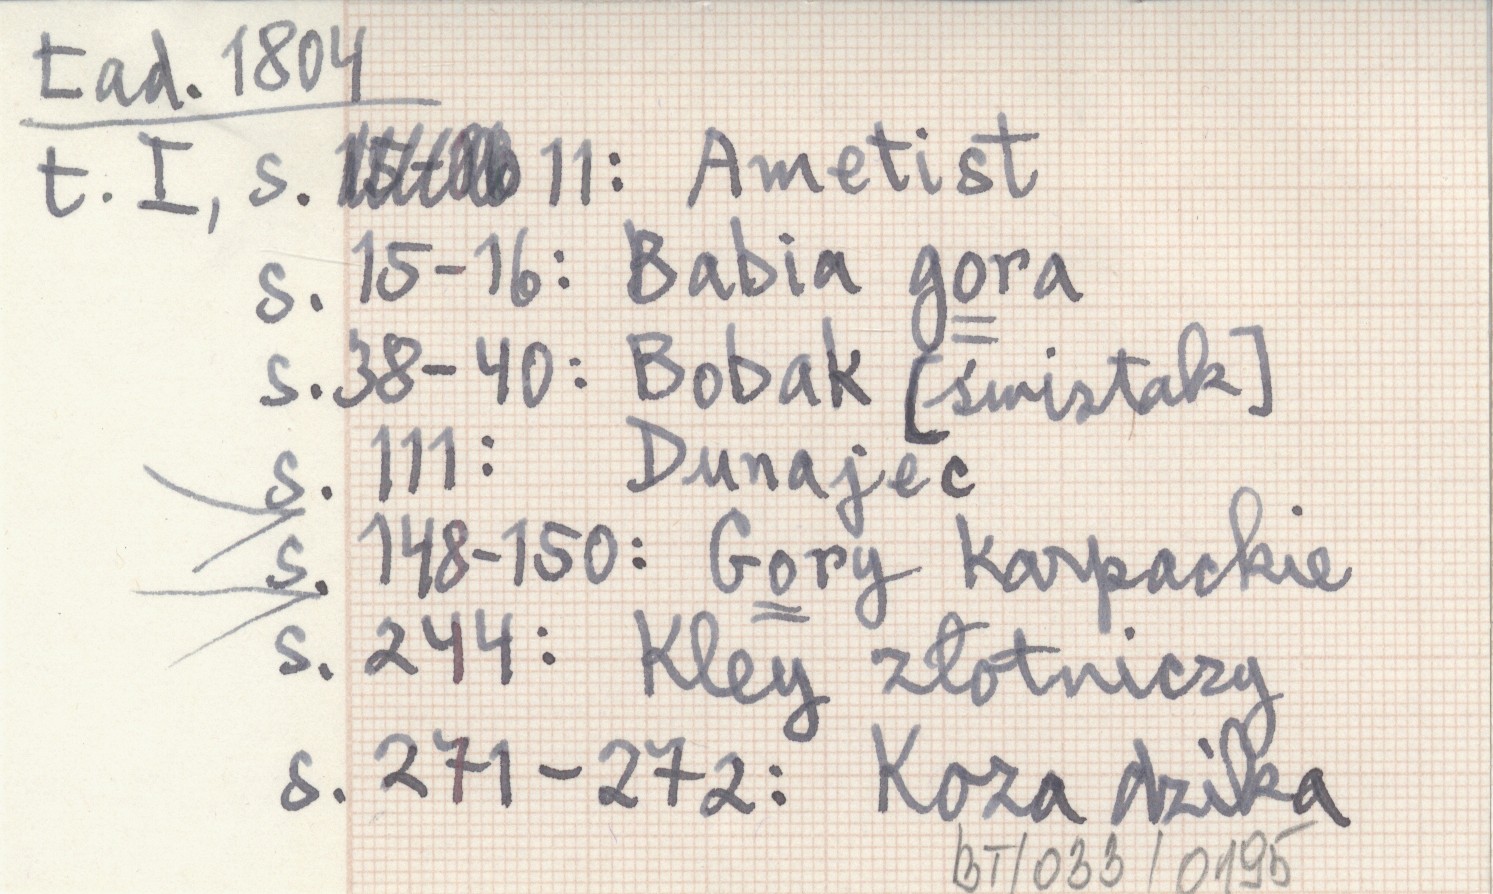 Ład. 1804
t. I, s. 11: Ametist
s. 15-16: Babia gora
s. 38-40: Bobak [świstak]
s. 111: Dunajec
s. 148-150: Gory Karpackie
s. 244: Kley złotniczy
s. 271-272: Koza dzika
BT/033/0195